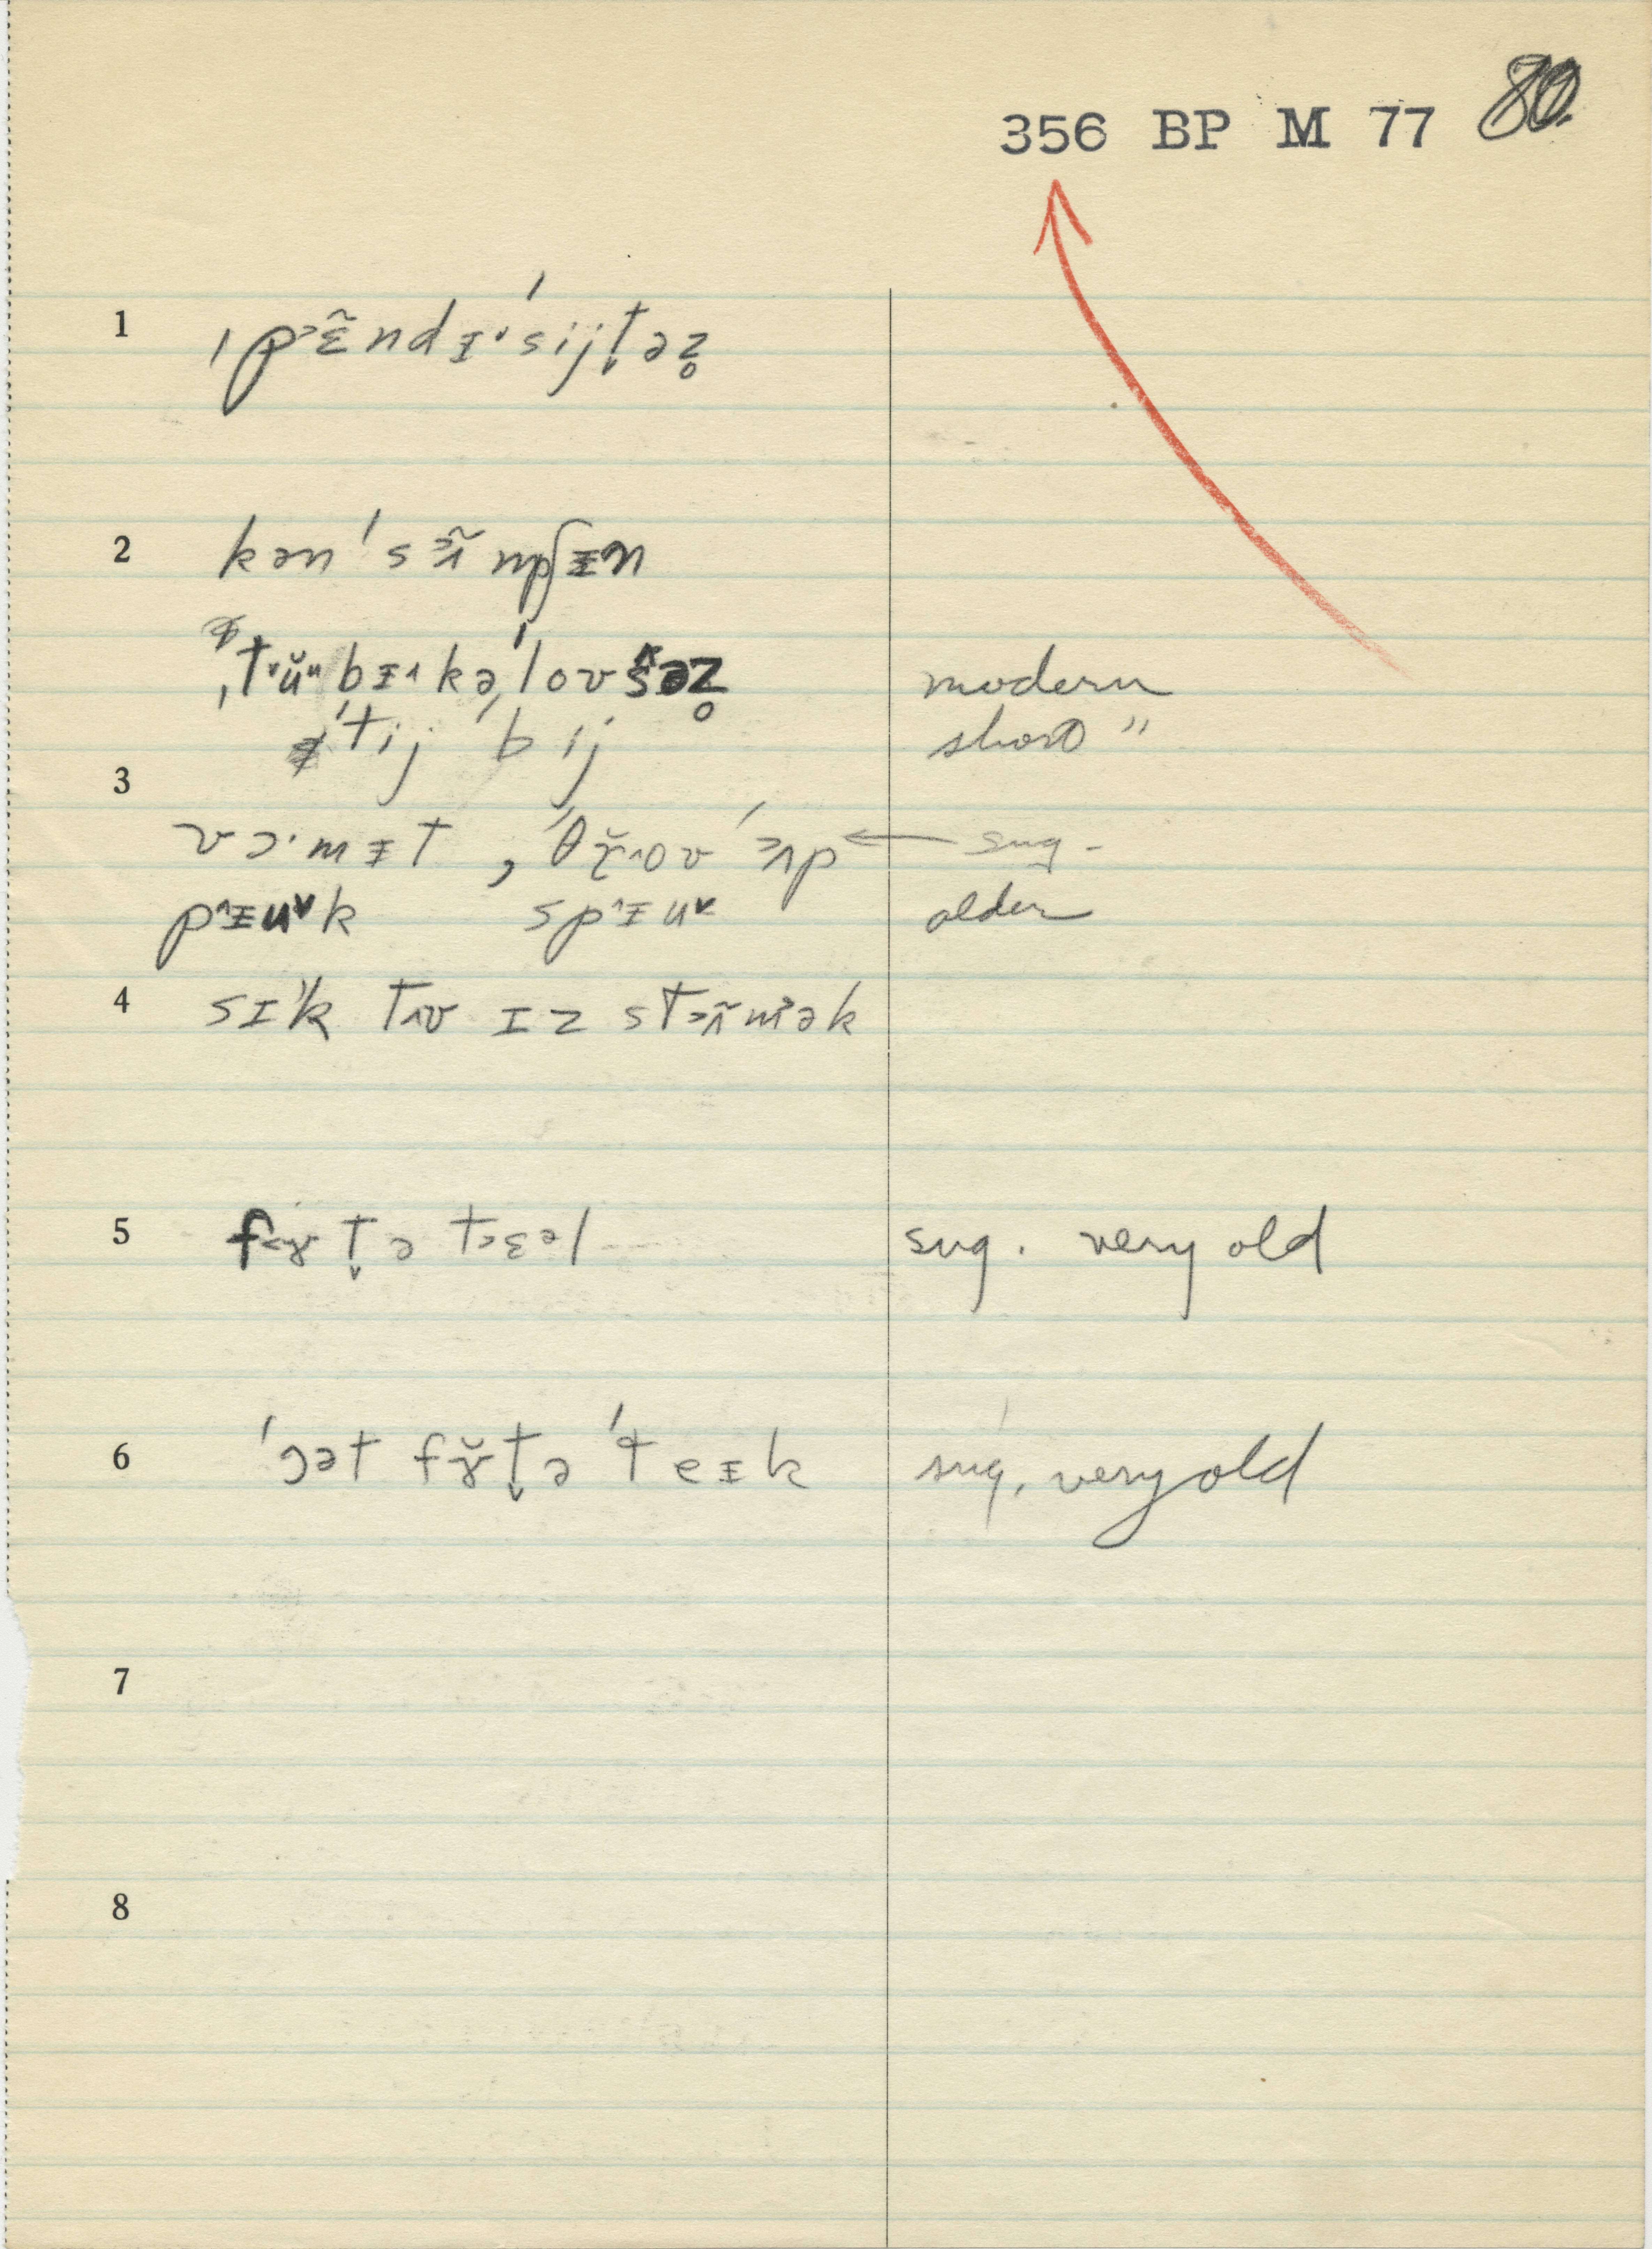 356 BP M 77 80.
1 ˌp˃ɛ̃ndᵻ˅ˈsijt̬əz̥
2 kənˈsɜ̃mpʃᵻn
ˌt˅ŭᵘbᵻ˄kəˈlovsəz̥ modern
ˈtij ˈbij short "
3
vɔ·mᵻt, ˈθɤ̆˄ov ˈʌp ← sug.
p˄ᵻuk sp˄ᵻu older
4 sɪk tʌv ɪz stʌ̃mək
5 fɤt̬ə tɛəl sug. very old
6 ˈɔət fɤ̆t̬ə ˈteᵻk sug. very old
7
8